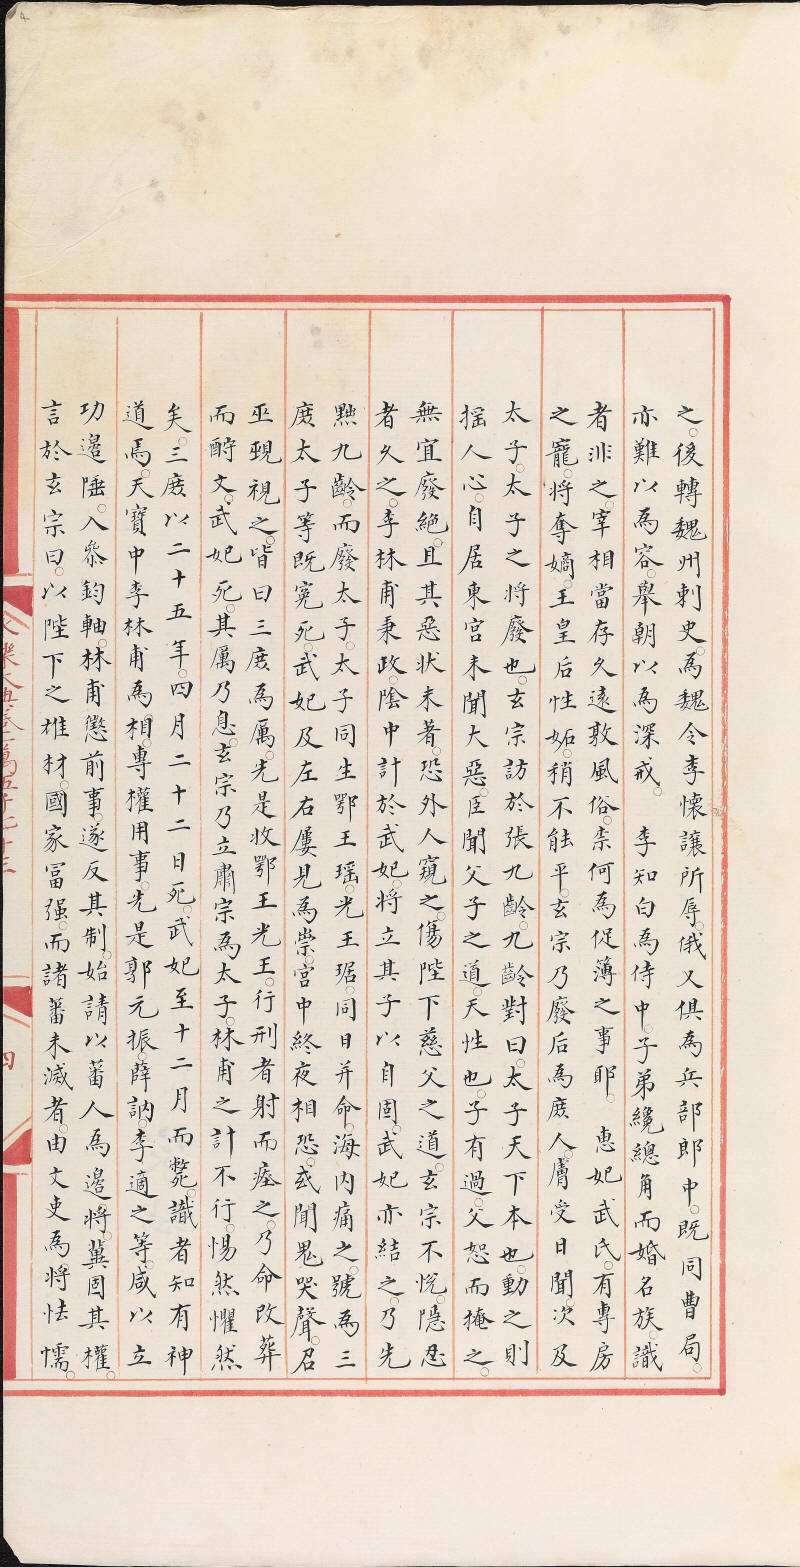 之。後轉魏州刺史。為魏令李懷讓所辱。俄又俱為兵部郎中。既同曹局。
亦難以為容。舉朝以為深戒。　李知白為侍中。子弟纔總角而婚名族。識
者非之。宰相當存久遠敦風俗。柰何為促薄之事耶。　惠妃武氏。有專房
之寵。將奪嫡。王皇后性妬。稍不能平。玄宗乃廢后為庶人。膚受日聞。次及
太子。太子之將廢也。玄宗訪於張九齡。九齡對曰。太子天下本也。動之則
揺人心。自居東宫未聞大惡。臣聞父子之道。天性也。子有過。父恕而掩之。
無宜廢絶。且其惡状未著。恐外人窺之。傷陛下慈父之道。玄宗不悦。隱忍
者久之。李林甫秉政。陰中計於武妃。將立其子以自固。武妃亦結之。乃先
黜九齡。而廢太子。太子同生鄂王瑶。光王琚。同日并命。海内痛之。號為三
庶太子等既寃死。武妃及左右屢見為祟。宮中終夜相恐。或聞鬼哭聲。召
巫覡視之。皆曰三庶為厲。先是收鄂王光王。行刑者射而瘞之。乃命改葬
而酹文。武妃死。其厲乃息。玄宗乃立肅宗為太子。林甫之計不行。惕然懼然
矣。三庶以二十五年。四月二十二日死。武妃至十二月而斃。識者知有神
道焉。天寶中李林甫為相。專權用事。先是郭元振。薛訥。李適之等。咸以立
功邊陲。入叅鈞軸。林甫懲前事。遂反其制。始請以蕃人為邊將。冀固其權。
言於玄宗曰。以陛下之雄材。國家冨强。而諸蕃未滅者。由文吏為將怯懦。
四